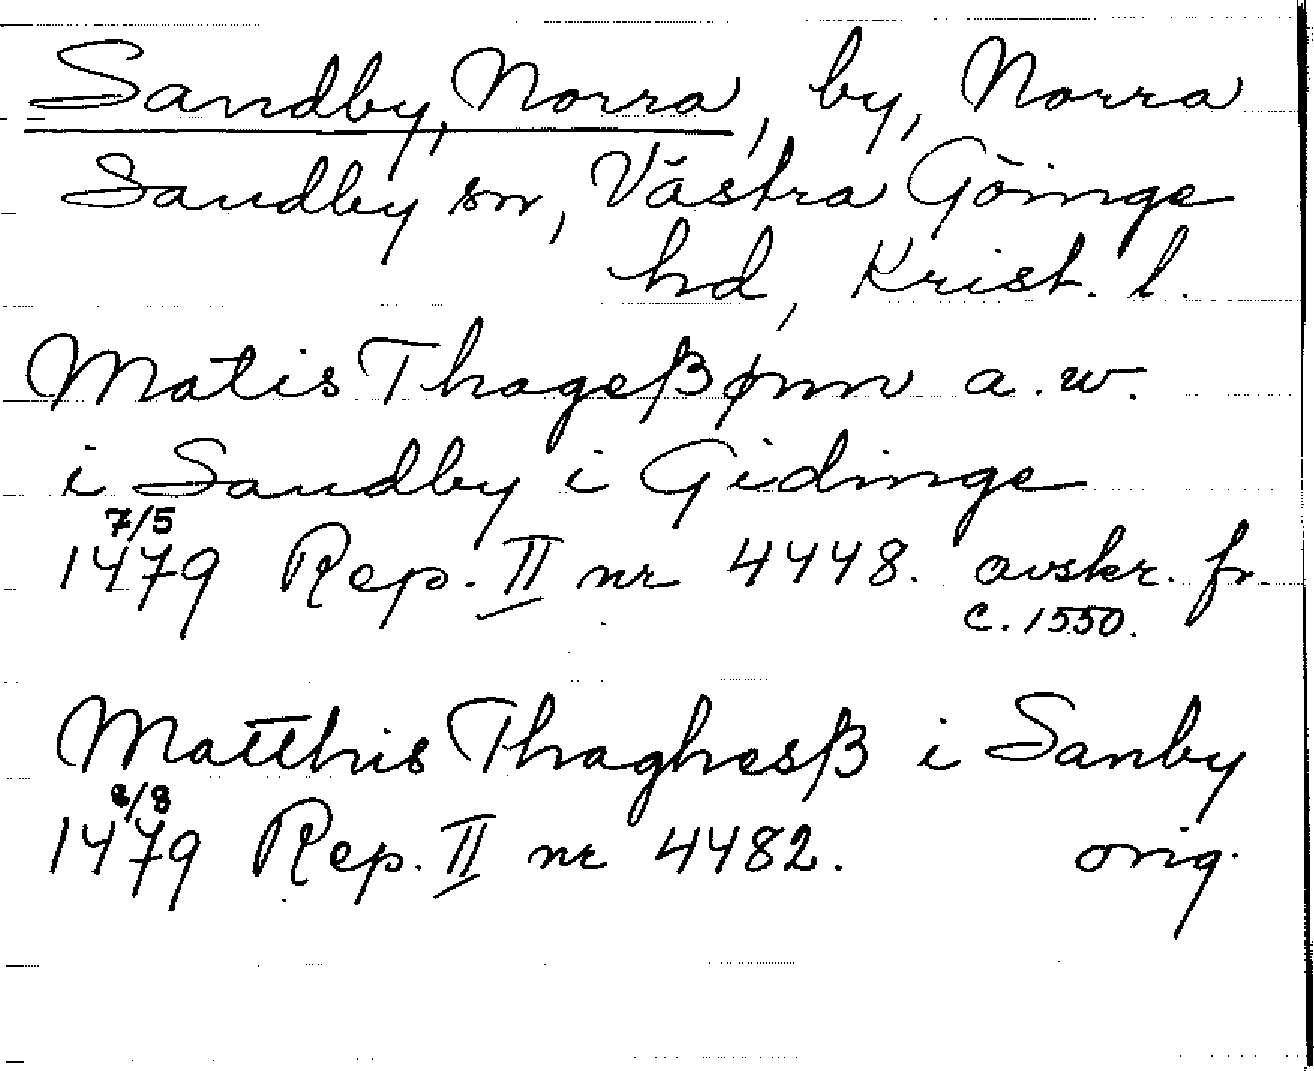 Sandby, Norra, by, Norra
Sandby sn, Västra Göinge
hd, Krist. l.
Matis Thageßønn a.w.
i Sandby i Gidinge
7/5
1479 Rep. II nr 4448. avskr. fr.
c. 1550.
Matthis Thaghesß i Sanby
8/8
1479 Rep. II nr 4482. orig.